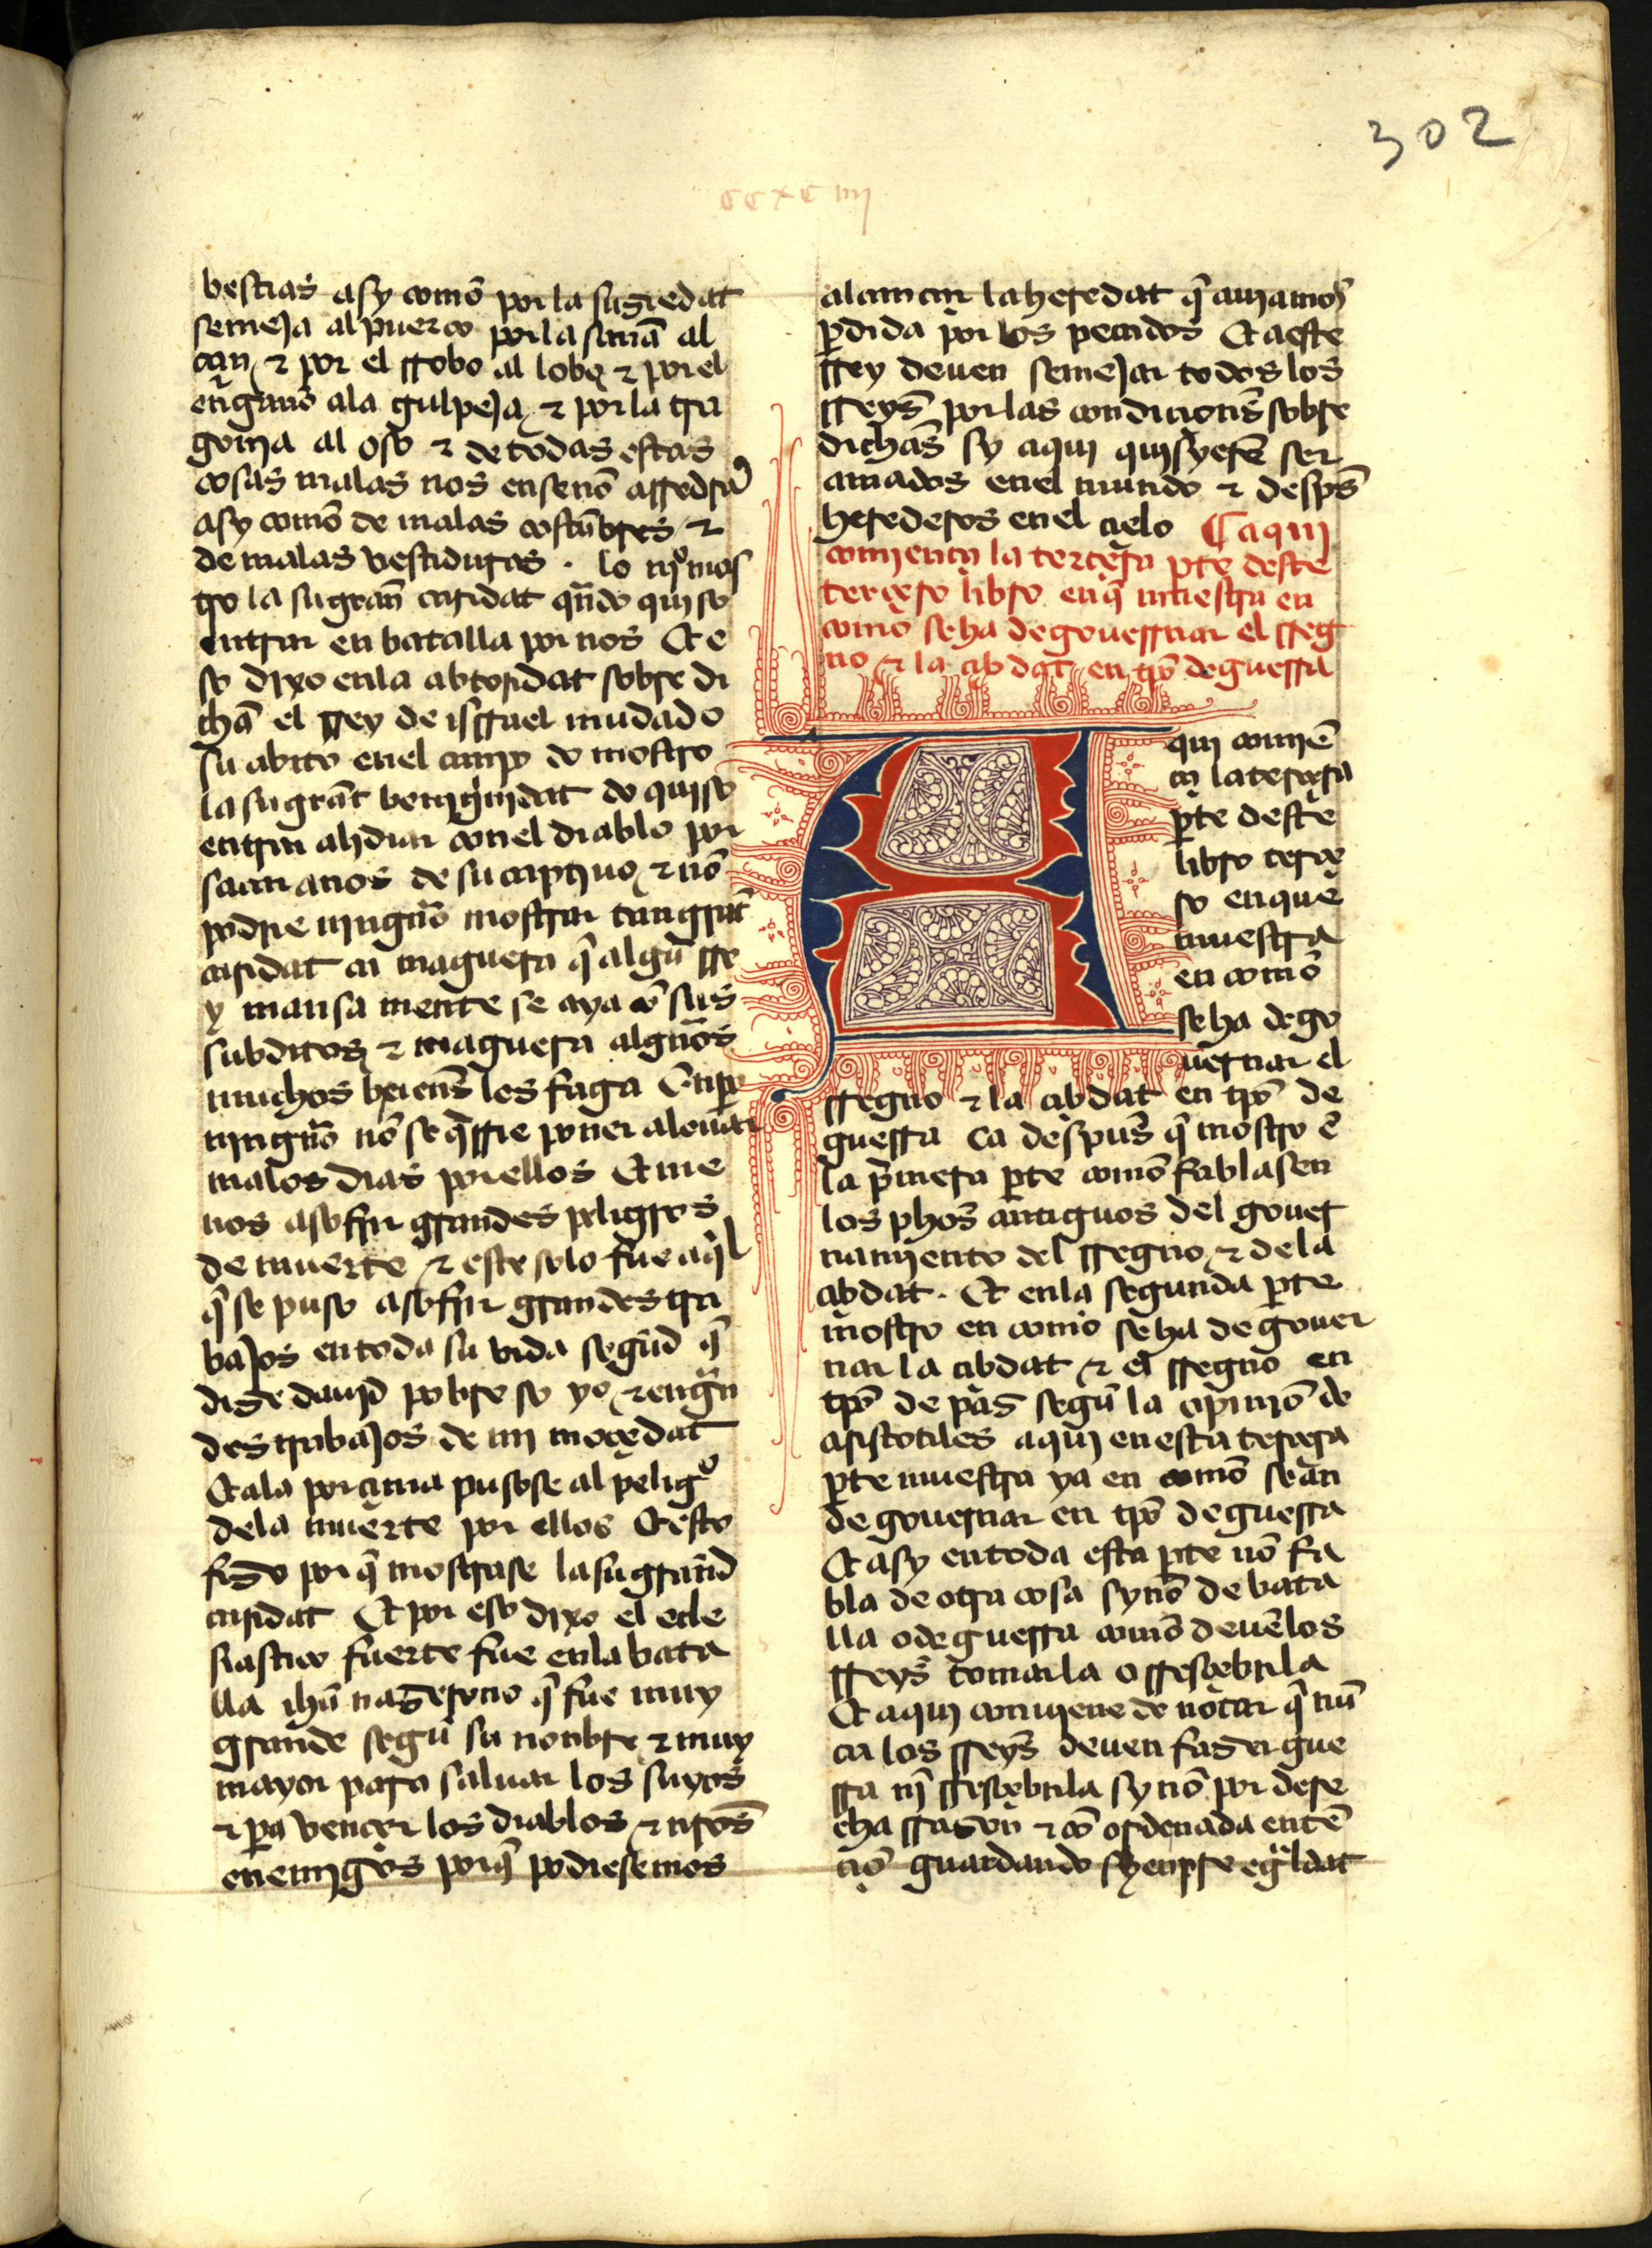 302
ccxc iiij
bestias asy comō por la suziedat
semeja al puerco por la sanā al
can ⁊ por el rrobo al lobo ⁊ por el
engañō ala gulpeja ⁊ por la tra
gonia al oso ⁊ de todas estas
cosas malas nos enseñō arredrar
asy comō de malas costūbres ⁊
de malas vestiduras . lo iijº mos
tro la su grañ caridat qñdo quiso
entrar en batalla por nos Et e
so dixo enla abtoridat sobre di
chā el rrey de isrrael mudado
su abito enel canpo do mostro
la su grāt beniginidat do quiso
entrar alidiar conel diablo por
sacar anos de su captiuo ⁊ nō
podrie ninguō mostrar tan grāt
caridat ca maguera q̄ algū rre
y mansa mente se aya cō sus
subditos ⁊ maguera alguōs
muchos bienes les faga Enpo
ninguō nō se q̄rrie poner aleuar
malos dias por ellos Et me
nos asofrir grandes peligros
de muerte ⁊ este solo fue aq̄l
q̄ se puso asofrir grandes tra
bajos en toda su vida segūd q̄
dize dauid pobre so yo ⁊ en grā
des trabajos de mi moçedat
Et ala por çima pusose al peligº
dela muerte por ellos Et esto
fizo por q̄ mostrase la su grand
caridat Et por eso dixo el ecle
siastico fuerte fue enla bata
lla ihū nazareno q̄ fue muy
grande segū su nonbre ⁊ muy
mayor para saluar los suyos
⁊ pa vençer los diablos ⁊ nros
enemigos porq̄ podiesemos
alcançar la heredat q̄ auiamos
pdida por los pecados Et aeste
rrey deuen semejar todos los
rreys por las condiciones sobre
dichas sy aqui quisyerē ser
amados enel mundo ⁊ desps
herederos enel çielo ¶ aqui
comiença la terçera pte deste
terçero libro enq̄ muestra en
como seha degouernar el rreg
no ⁊ la çibdat en tpō deguerra
A qui comiē
ça la terçera
pte deste
libro terçe
ro en que
muestra
en comō
seha dego
uernar el
rregno ⁊ la çibdat en tpō de
guerra Ca despues q̄ mostro ē
la p̄mera pte comō fablasen
los phos antiguos del gouer
namiento del rregno ⁊ dela
çibdat . Et enla segunda pte
mostro en como seha degouer
nar la çibdat ⁊ el rregno en
tpō de paz segū la opiniō de
aristotiles aqui en esta terçera
pte muestra ya en comō sean
de gouernar en tpō deguerra
Et asy en toda esta pte nō fa
bla de otra cosa synō de bata
lla o deguerra comō deuē los
rreys tomarla o rresçebirla
Et aqui conuiene de notar q̄ nū
ca los rreys deuen fazer gue
rra nī rresçebirla synō por dere
cha rrazon ⁊ cō ordenada entē
çiō guardando syenpre egueldat